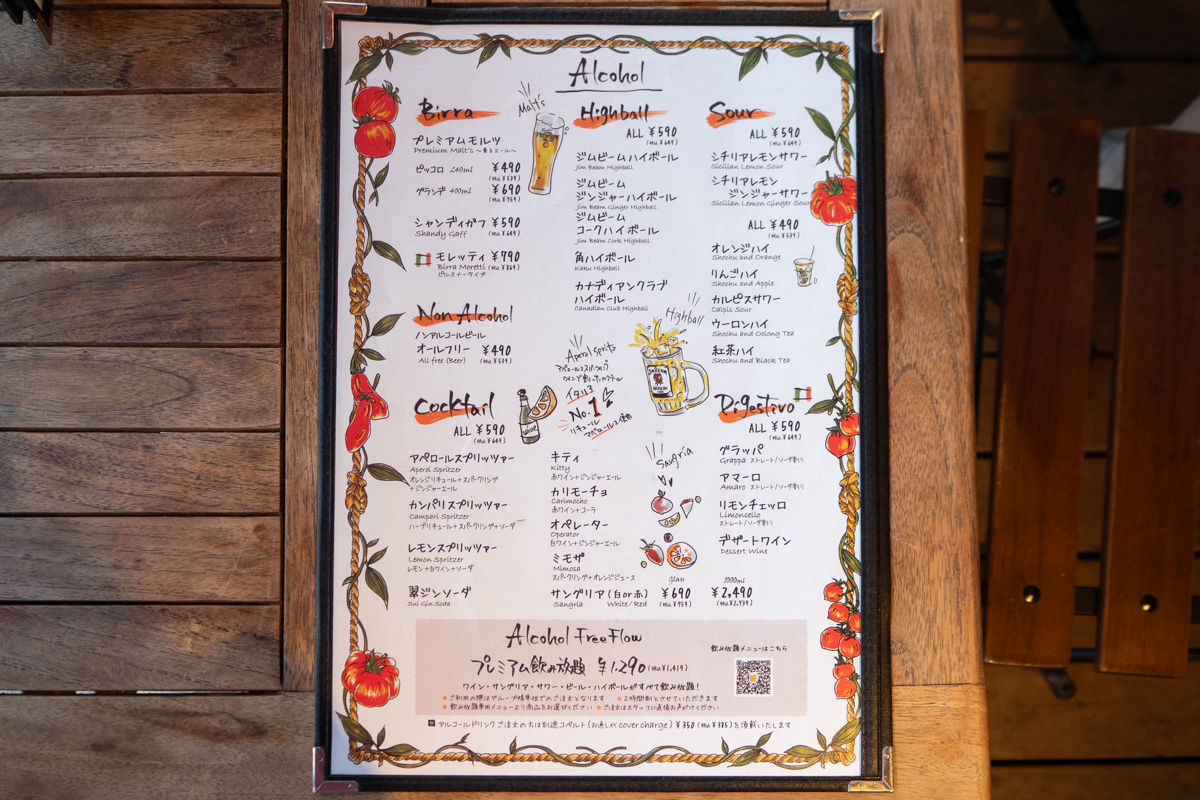 Alcohol
Birra
プレミアムモルツ
Premium Malt's ～香るエール～
ピッコロ 240ml ¥490
(税込¥539)
グランデ 400ml ¥690
(税込¥759)
シャンディガフ ¥590
Shandy Gaff (税込¥649)
モレッティ ¥790
Birra Moretti (税込¥869)
ピルスナータイプ
Malt's
Non Alcohol
ノンアルコールビール
オールフリー ¥490
All free (Beer) (税込¥539)
Highball
ALL ¥590
(税込¥649)
ジムビームハイボール
Jim Beam Highball
ジムビーム
ジンジャーハイボール
Jim Beam Ginger Highball
ジムビーム
コークハイボール
Jim Beam Cork Highball
角ハイボール
Kaku Highball
カナディアンクラブ
ハイボール
Canadian Club Highball
Highball
Sour
ALL ¥590
(税込¥649)
シチリアレモンサワー
Sicilian Lemon Sour
シチリアレモン
ジンジャーサワー
Sicilian Lemon Ginger Sour
ALL ¥490
(税込¥539)
オレンジハイ
Shochu and Orange
りんごハイ
Shochu and Apple
カルピスサワー
Calpis Sour
ウーロンハイ
Shochu and Oolong Tea
紅茶ハイ
Shochu and Black Tea
Aperol Sprits
アペロールとスパークリング
ワインで割ったカクテル
イタリア
No.1
リキュール
アペロールを使用
Cocktail
ALL ¥590
(税込¥649)
アペロールスプリッツァー
Aperol Spritzer
オレンジリキュール+スパークリング
+ジンジャーエール
カンパリスプリッツァー
Campari Spritzer
ハーブリキュール+スパークリング+ソーダ
レモンスプリッツァー
Lemon Spritzer
レモン+白ワイン+ソーダ
翠ジンソーダ
Sui Gin Soda
キティ
Kitty
赤ワイン+ジンジャーエール
カリモーチョ
Carimocho
赤ワイン+コーラ
オペレーター
Operator
白ワイン+ジンジャーエール
ミモザ
Mimosa
スパークリング+オレンジジュース
Sangria
Glass 1000ml
サングリア (白or赤) ¥690 ¥2,490
Sangria White/Red (税込¥759) (税込¥2,739)
Digestivo
ALL ¥590
(税込¥649)
グラッパ
Grappa ストレート/ソーダ割り
アマーロ
Amaro ストレート/ソーダ割り
リモンチェッロ
Limoncello
ストレート/ソーダ割り
デザートワイン
Dessert Wine
Alcohol Free Flow
プレミアム飲み放題 ¥1,290 (税込¥1,419)
飲み放題メニューはこちら
ワイン・サングリア・サワー・ビール・ハイボールがすべて飲み放題！
※ご利用の際はグループ様単位でのご注文となります ※2時間制とさせていただきます
※飲み放題専用メニューより商品をお選びください ※ご注文はスタッフに直接お声がけください
※アルコールドリンクご注文の方は別途コペルト(お通し代 cover charge) ¥350 (税込¥385)を頂戴いたします